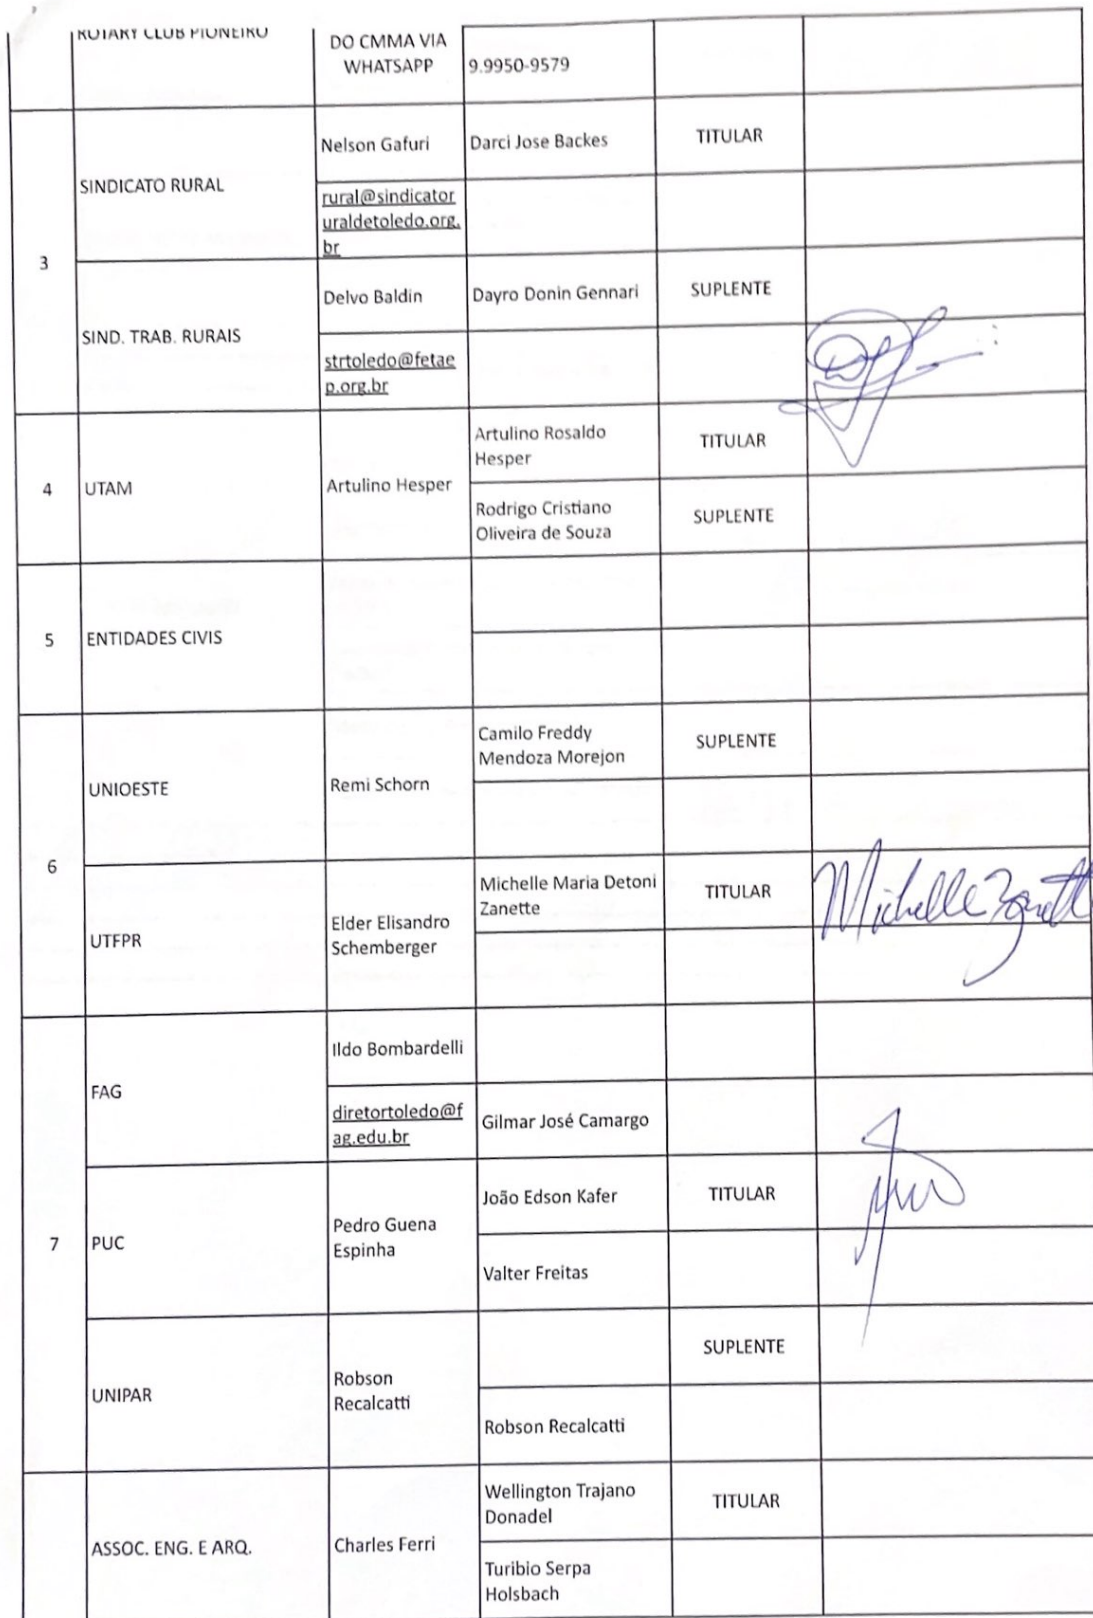 ROTARY CLUB PIONEIRO
DO CMMA VIA
WHATSAPP
9.9950-9579
3
SINDICATO RURAL
Nelson Gafuri
Darci Jose Backes
TITULAR
rural@sindicator
uraldetoledo.org.
br
SIND. TRAB. RURAIS
Delvo Baldin
Dayro Donin Gennari
SUPLENTE
strtoledo@fetae
p.org.br
4
UTAM
Artulino Hesper
Artulino Rosaldo
Hesper
TITULAR
Rodrigo Cristiano
Oliveira de Souza
SUPLENTE
5
ENTIDADES CIVIS
6
UNIOESTE
Remi Schorn
Camilo Freddy
Mendoza Morejon
SUPLENTE
UTFPR
Elder Elisandro
Schemberger
Michelle Maria Detoni
Zanette
TITULAR
Michelle Zanett
7
FAG
Ildo Bombardelli
diretortoledo@f
ag.edu.br
Gilmar José Camargo
PUC
Pedro Guena
Espinha
João Edson Kafer
TITULAR
Valter Freitas
UNIPAR
Robson
Recalcatti
SUPLENTE
Robson Recalcatti
ASSOC. ENG. E ARQ.
Charles Ferri
Wellington Trajano
Donadel
TITULAR
Turibio Serpa
Holsbach